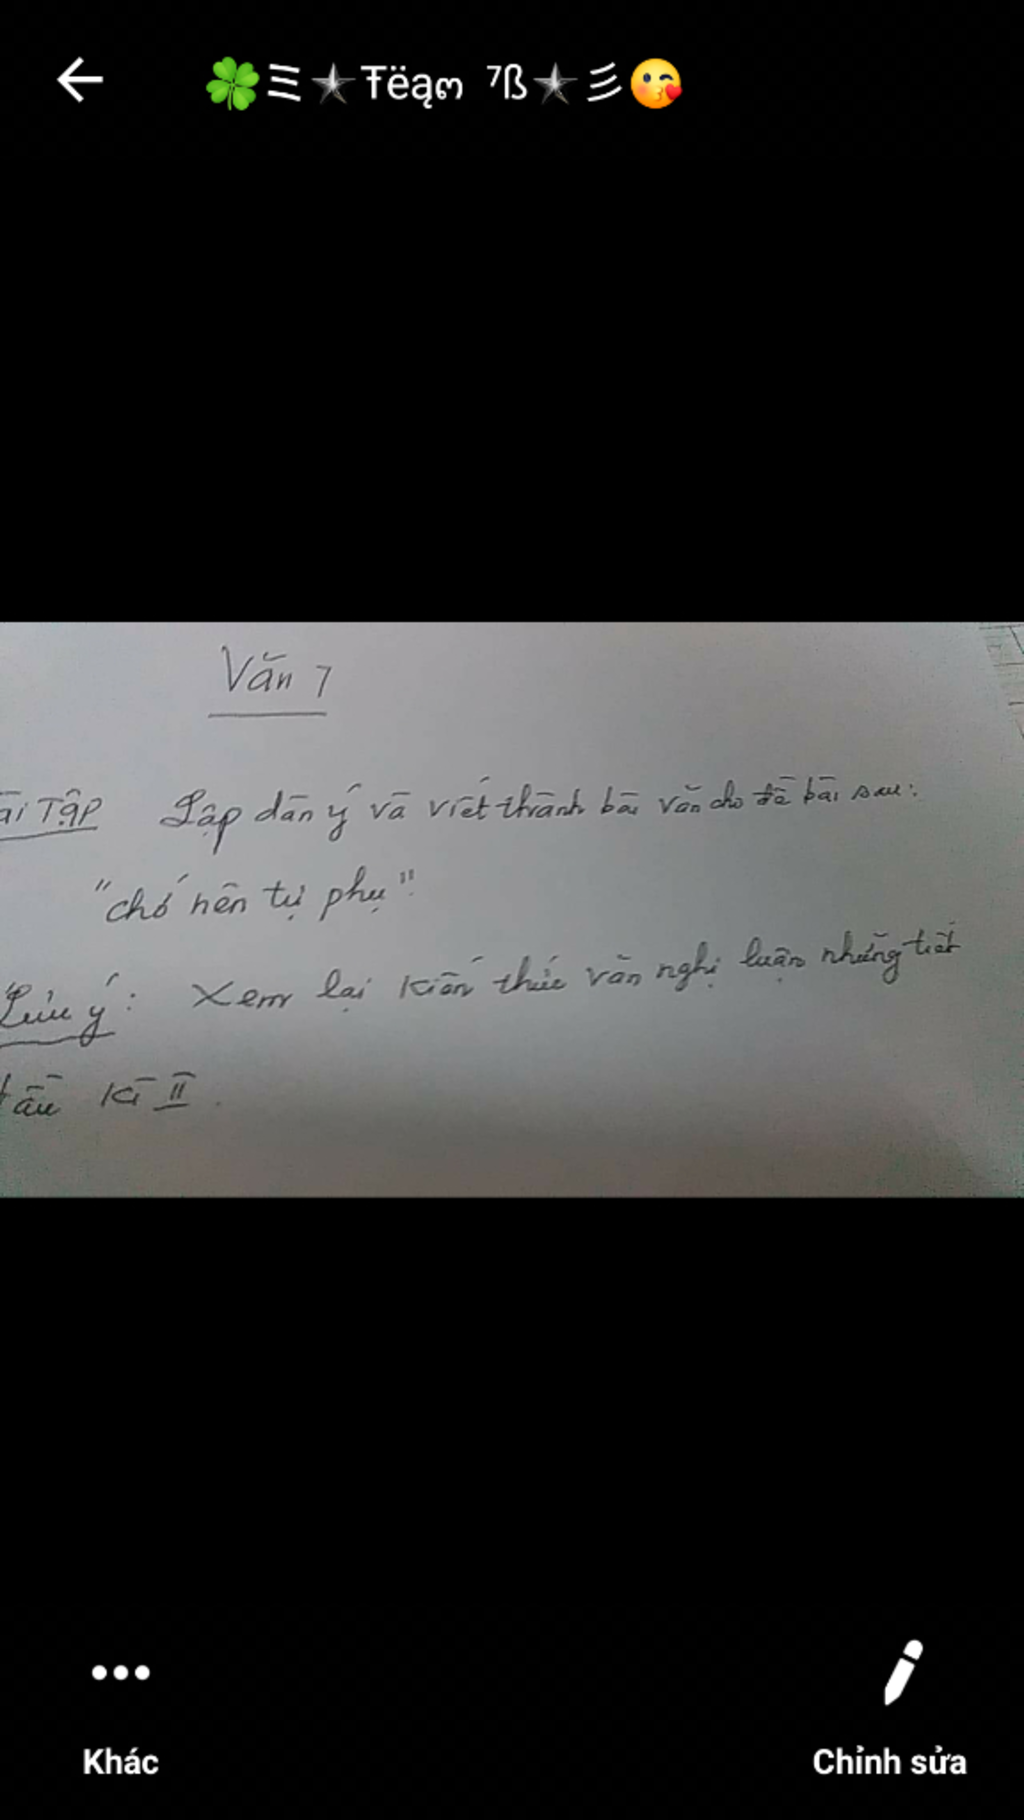 🍀彡★Ŧëąლ ⁷ß★彡😘
Văn 7
ài Tập Lập dàn ý và viết thành bài văn cho đề bài sau:
"chớ nên tự phụ"
Lưu ý: Xem lại kiến thức văn nghị luận những tiết
đầu kì II.
Khác
Chỉnh sửa